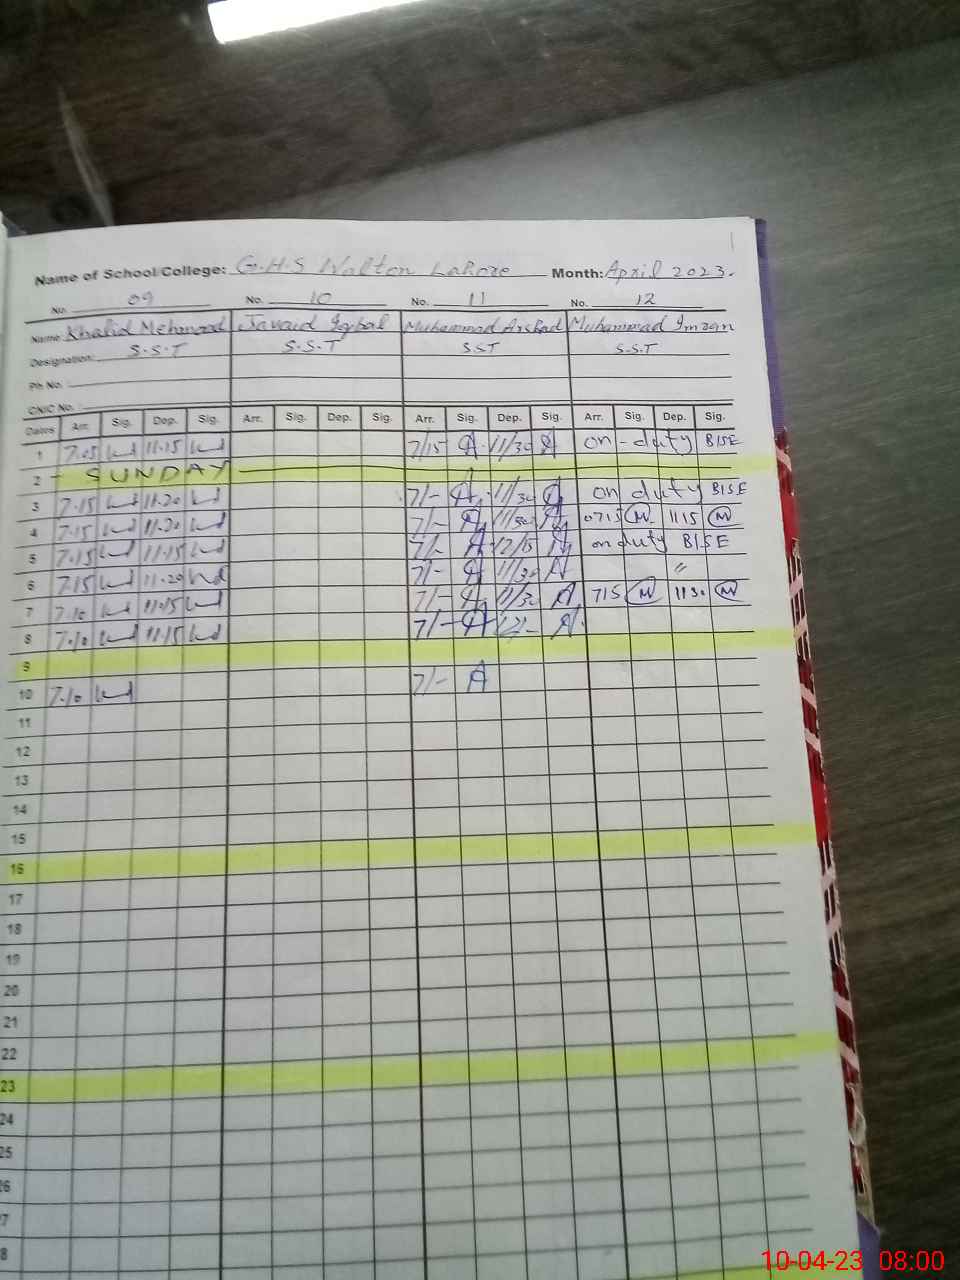 Name of School/College: G.H.S Walton Lahore Month: April 2023.
No. 09 No. 10 No. 11 No. 12
Name: Khalid Mehmood Javaid Iqbal Muhammad Arshad Muhammad Imran
Designation: S.S.T S.S.T S.S.T S.S.T
Ph No.:
CNIC No.:
Dates Arr. Sig. Dep. Sig. Arr. Sig. Dep. Sig. Arr. Sig. Dep. Sig. Arr. Sig. Dep. Sig.
1 7.05 11.15 7/15 A 11/30 A on-duty BISE
2 - SUNDAY
3 7.15 11.20 7/- A 11/30 A on duty BISE
4 7.15 11.20 7/- A 11/30 A 0715 M 1115 M
5 7.15 11.15 7/- A 12/15 A on duty BISE
6 7.15 11.20 7/- A 11/30 A "
7 7.10 11.15 7/- A 11/30 A 715 M 1130 M
8 7.10 11.15 7/- A 12/- A
9
10 7.10 7/- A
11
12
13
14
15
16
17
18
19
20
21
22
23
24
25
26
7
8
10-04-23 08:00